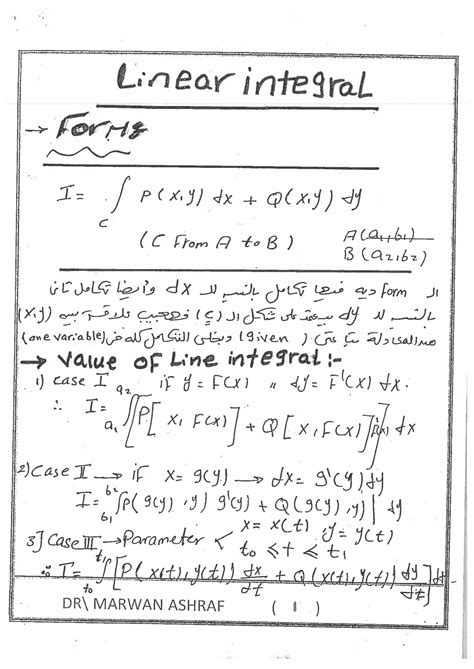 Linear integral
→ Forms
I = ∫ P(x,y) dx + Q(x,y) dy
C
(C From A to B) A(a1,b1)
B(a2,b2)
الـ Form ديه فيها تكامل بالنسبة للـ dx وأيضا تكامل تانى
بالنسبة للـ dy على شكل الـ (c) علاقة بين (x,y)
(Given) التكامل كله (one variable)
→ Value of Line integral:-
1) Case I if y = F(x) " dy = F'(x) dx.
∴ I = ∫ a1 a2 [P[x, F(x)] + Q[x, F(x)] F'(x)] dx
2) Case II → if x = g(y) → dx = g'(y) dy
I = ∫ b1 b2 [P(g(y), y) g'(y) + Q(g(y), y)] dy
3] Case III → Parameter < x = x(t) , y = y(t)
t0 ≤ t ≤ t1
∴ I = ∫ t0 t1 [P(x(t), y(t)) dx/dt + Q(x(t), y(t)) dy/dt] dt
DR\ MARWAN ASHRAF ( 1 )